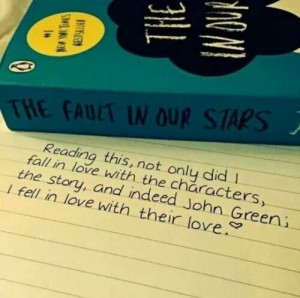 #1
NEW YORK TIMES
BESTSELLER
THE
IN OUR
THE FAULT IN OUR STARS
Reading this, not only did I
fall in love with the characters,
the story, and indeed John Green;
I fell in love with their love.